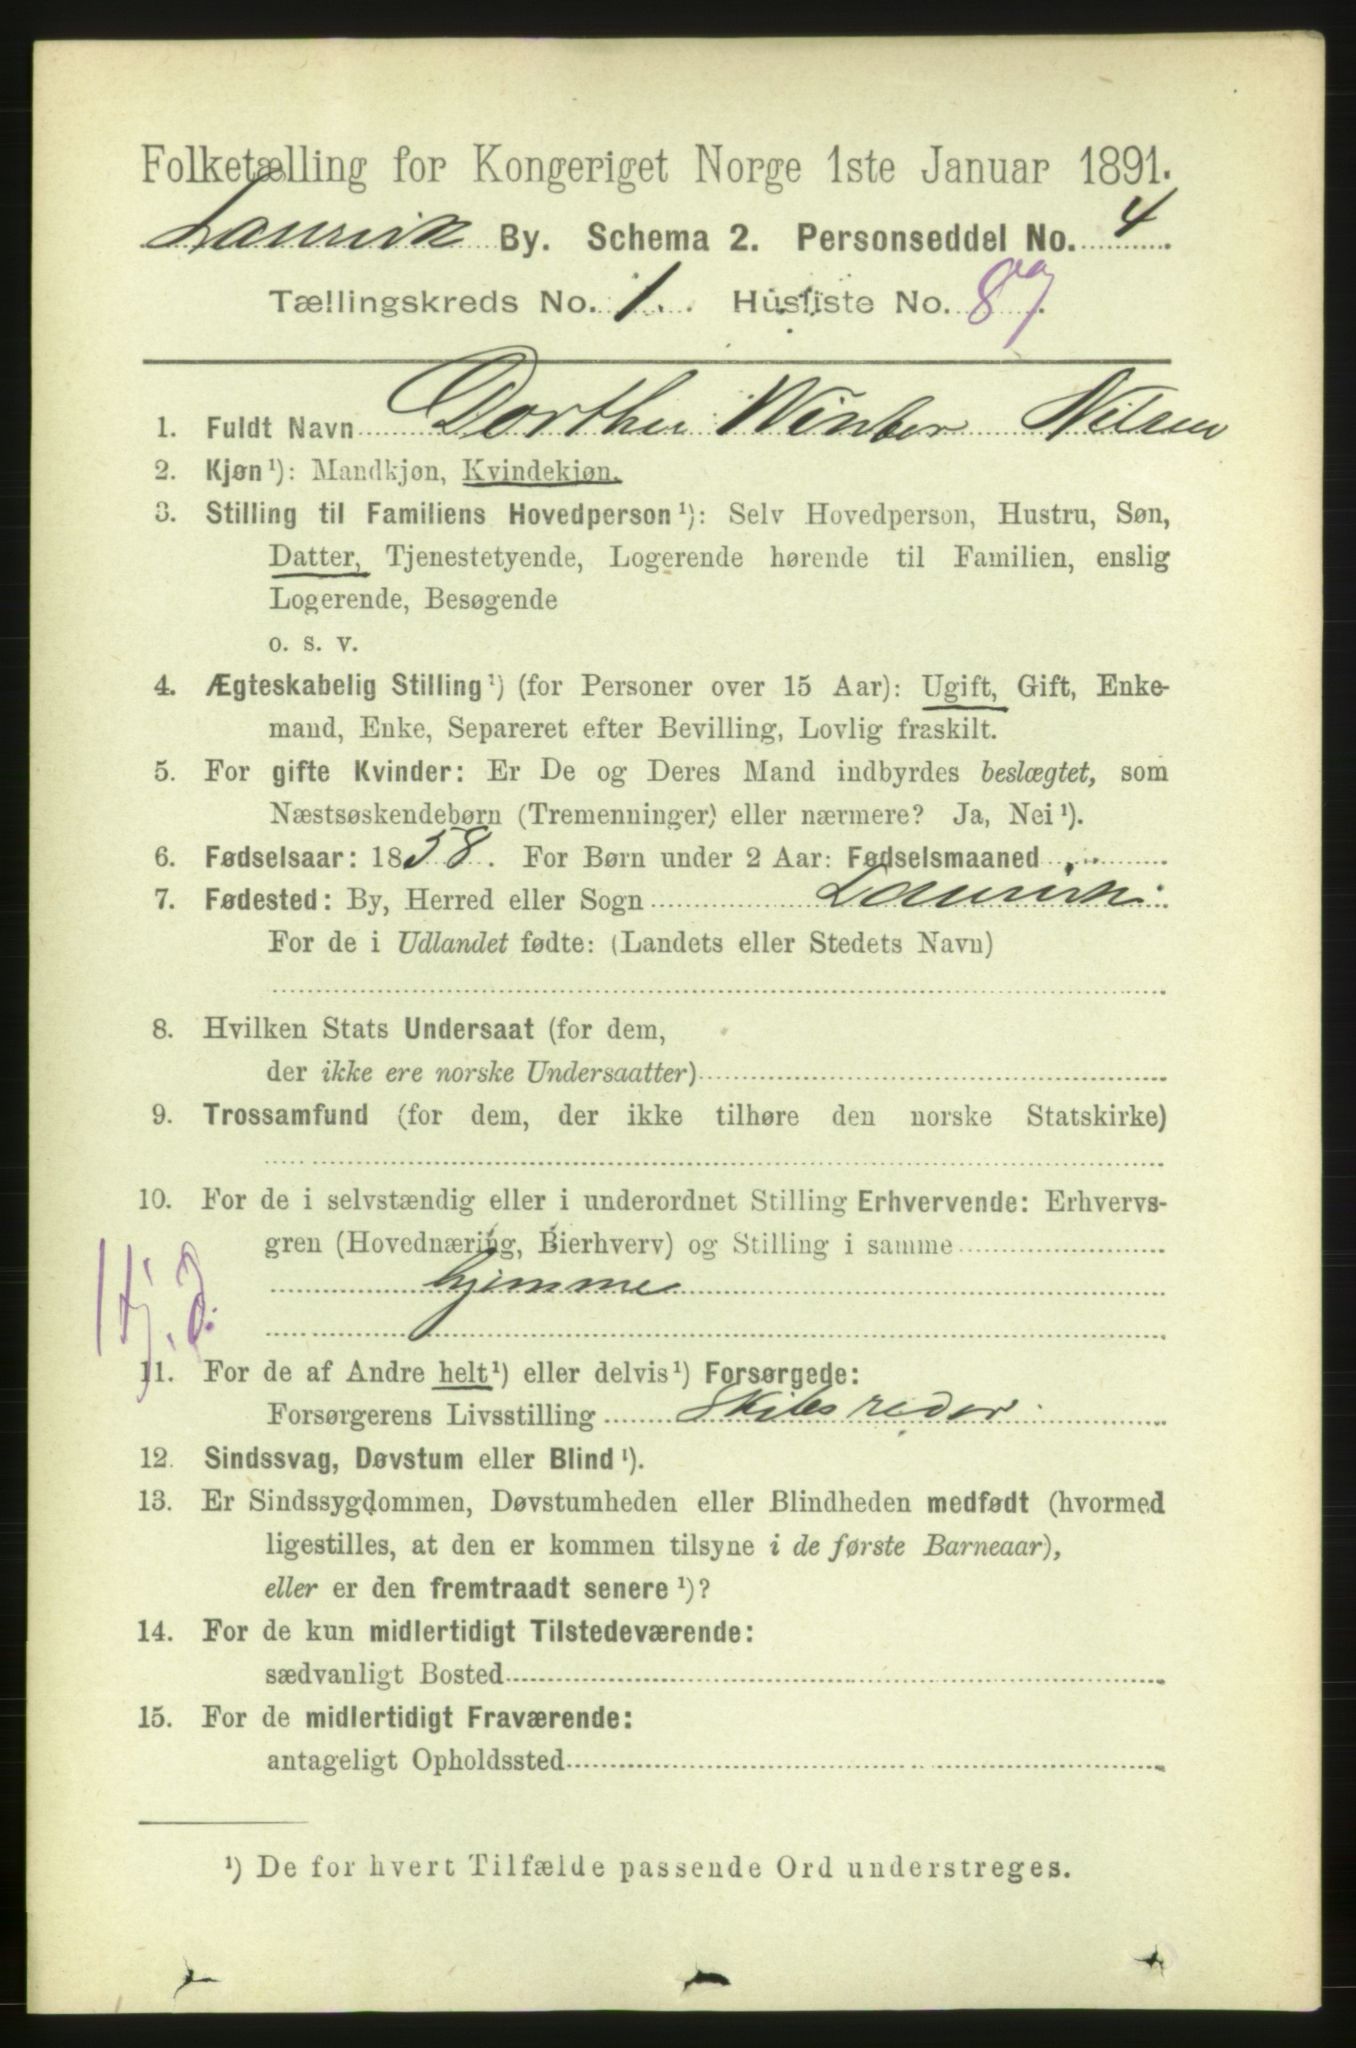 Folketælling for Kongeriget Norge 1ste Januar 1891.
Laurvik By. Schema 2. Personseddel No. 4
Tællingskreds No. 1. Husliste No. 87.
1. Fuldt Navn Dorthea Winter Nilsen
2. Kjøn¹): Mandkjøn, Kvindekjøn.
3. Stilling til Familiens Hovedperson¹): Selv Hovedperson, Hustru, Søn,
Datter, Tjenestetyende, Logerende hørende til Familien, enslig
Logerende, Besøgende
o. s. v.
4. Ægteskabelig Stilling¹) (for Personer over 15 Aar): Ugift, Gift, Enke-
mand, Enke, Separeret efter Bevilling, Lovlig fraskilt.
5. For gifte Kvinder: Er De og Deres Mand indbyrdes beslægtet, som
Næstsøskendebørn (Tremenninger) eller nærmere? Ja, Nei¹).
6. Fødselsaar: 1858. For Børn under 2 Aar: Fødselsmaaned
7. Fødested: By, Herred eller Sogn Laurvik
For de i Udlandet fødte: (Landets eller Stedets Navn)
8. Hvilken Stats Undersaat (for dem,
der ikke ere norske Undersaatter)
9. Trossamfund (for dem, der ikke tilhøre den norske Statskirke)
10. For de i selvstændig eller i underordnet Stilling Erhvervende: Erhvervs-
gren (Hovednæring, Bierhverv) og Stilling i samme
hjemme
Hj. d.
11. For de af Andre helt¹) eller delvis¹) Forsørgede:
Forsørgerens Livsstilling Skibsreder
12. Sindssvag, Døvstum eller Blind¹).
13. Er Sindssygdommen, Døvstumheden eller Blindheden medfødt (hvormed
ligestilles, at den er kommen tilsyne i de første Barneaar),
eller er den fremtraadt senere¹)?
14. For de kun midlertidigt Tilstedeværende:
sædvanligt Bosted
15. For de midlertidigt Fraværende:
antageligt Opholdssted
¹) De for hvert Tilfælde passende Ord understreges.